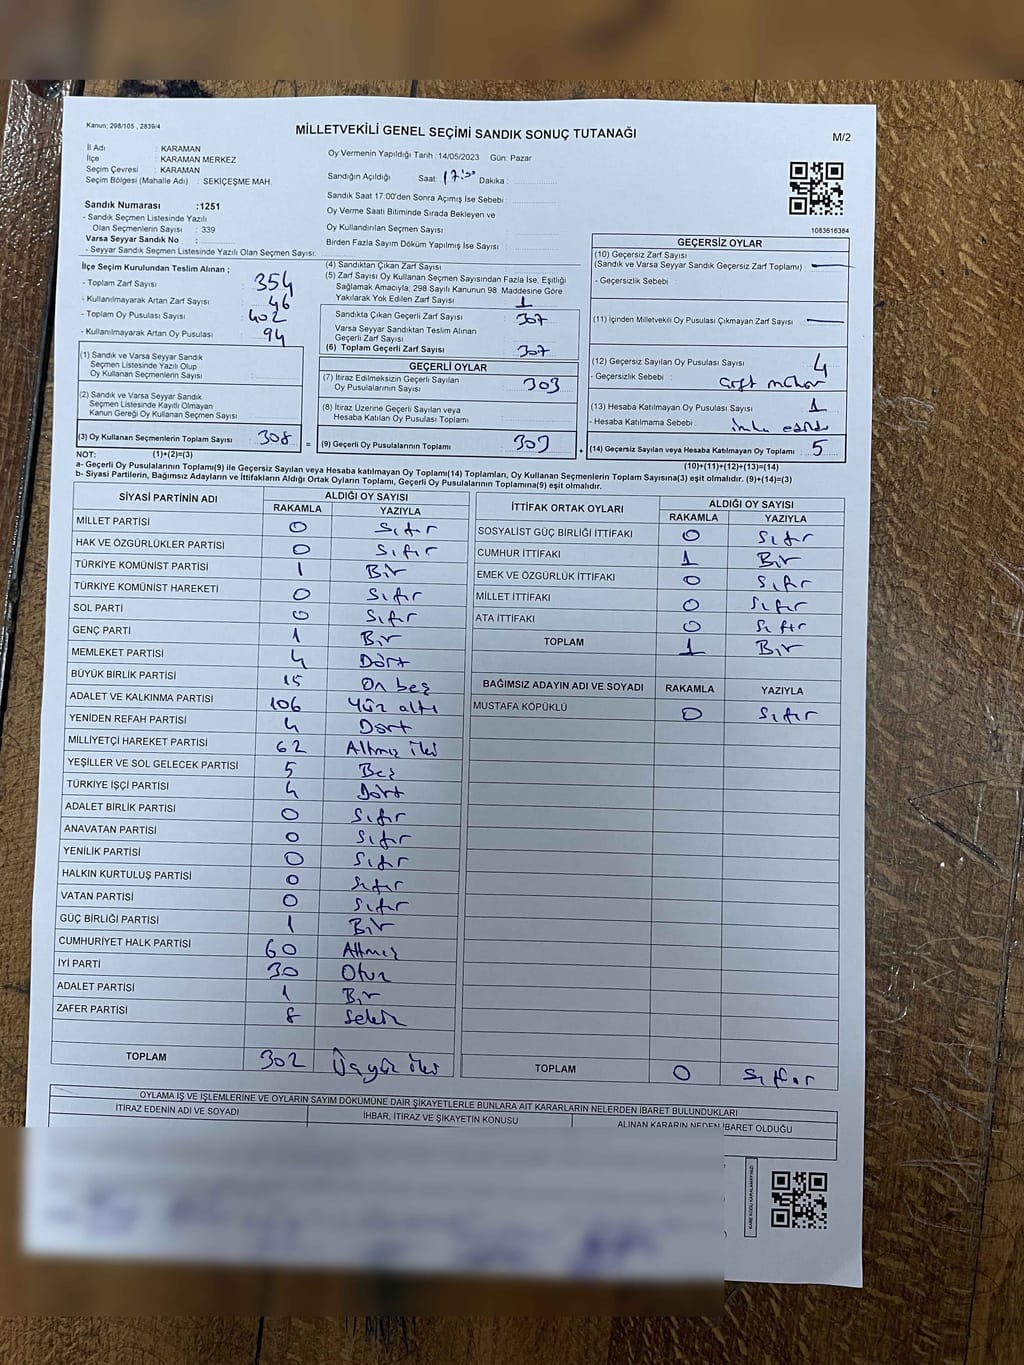 Kanun; 298/105 , 2839/4
MİLLETVEKİLİ GENEL SEÇİMİ SANDIK SONUÇ TUTANAĞI
M/2
İl Adı : KARAMAN
İlçe : KARAMAN MERKEZ
Seçim Çevresi : KARAMAN
Seçim Bölgesi (Mahalle Adı) : SEKİÇEŞME MAH.
Sandık Numarası :1251
- Sandık Seçmen Listesinde Yazılı
Olan Seçmenlerin Sayısı : 339
Varsa Seyyar Sandık No :
- Seyyar Sandık Seçmen Listesinde Yazılı Olan Seçmen Sayısı:
Oy Vermenin Yapıldığı Tarih :14/05/2023 Gün: Pazar
Sandığın Açıldığı Saat: 17:00 Dakika :
Sandık Saat 17:00'den Sonra Açımış İse Sebebi :
Oy Verme Saati Bitiminde Sırada Bekleyen ve
Oy Kullandırılan Seçmenlerin Sayısı :
Birden Fazla Sayım Döküm Yapılmış İse Sayısı :
1083616384
İlçe Seçim Kurulundan Teslim Alınan ;
- Toplam Zarf Sayısı : 354
- Kullanılmayarak Artan Zarf Sayısı : 46
- Toplam Oy Pusulası Sayısı : 402
- Kullanılmayarak Artan Oy Pusulası : 94
(1) Sandık ve Varsa Seyyar Sandık
Seçmen Listesinde Yazılı Olup
Oy Kullanan Seçmenlerin Sayısı :
(2) Sandık ve Varsa Seyyar Sandık
Seçmen Listesinde Kayıtlı Olmayan
Kanun Gereği Oy Kullanan Seçmen Sayısı :
(3) Oy Kullanan Seçmenlerin Toplam Sayısı : 308 =
(4) Sandıktan Çıkan Zarf Sayısı :
(5) Zarf Sayısı Oy Kullanan Seçmen Sayısından Fazla İse, Eşitliği
Sağlamak Amacıyla; 298 Sayılı Kanunun 98. Maddesine Göre
Yakılarak Yok Edilen Zarf Sayısı : 1
Sandıkta Çıkan Geçerli Zarf Sayısı : 307
Varsa Seyyar Sandıktan Teslim Alınan
Geçerli Zarf Sayısı :
(6) Toplam Geçerli Zarf Sayısı : 307
GEÇERLİ OYLAR
(7) İtiraz Edilmeksizin Geçerli Sayılan
Oy Pusulalarının Sayısı : 303
(8) İtiraz Üzerine Geçerli Sayılan veya
Hesaba Katılan Oy Pusulası Toplamı :
(9) Geçerli Oy Pusulalarının Toplamı : 303 +
GEÇERSİZ OYLAR
(10) Geçersiz Zarf Sayısı
(Sandık ve Varsa Seyyar Sandık Geçersiz Zarf Toplamı) :
- Geçersizlik Sebebi :
(11) İçinden Milletvekili Oy Pusulası Çıkmayan Zarf Sayısı :
(12) Geçersiz Sayılan Oy Pusulası Sayısı : 4
- Geçersizlik Sebebi : Çift mühür
(13) Hesaba Katılmayan Oy Pusulası Sayısı : 1
- Hesaba Katılmama Sebebi : imha edildi
(14) Geçersiz Sayılan veya Hesaba Katılmayan Oy Toplamı : 5
NOT: (1)+(2)=(3)
(10)+(11)+(12)+(13)=(14)
a- Geçerli Oy Pusulalarının Toplamı(9) ile Geçersiz Sayılan veya Hesaba katılmayan Oy Toplamı(14) Toplamları, Oy Kullanan Seçmenlerin Toplam Sayısına(3) eşit olmalıdır. (9)+(14)=(3)
b- Siyasi Partilerin, Bağımsız Adayların ve İttifakların Aldığı Ortak Oyların Toplamı, Geçerli Oy Pusulalarının Toplamına(9) eşit olmalıdır.
SİYASİ PARTİNİN ADI ALDIĞI OY SAYISI
RAKAMLA YAZIYLA
MİLLET PARTİSİ 0 Sıfır
HAK VE ÖZGÜRLÜKLER PARTİSİ 0 Sıfır
TÜRKİYE KOMÜNİST PARTİSİ 1 Bir
TÜRKİYE KOMÜNİST HAREKETİ 0 Sıfır
SOL PARTİ 0 Sıfır
GENÇ PARTİ 1 Bir
MEMLEKET PARTİSİ 4 Dört
BÜYÜK BİRLİK PARTİSİ 15 On beş
ADALET VE KALKINMA PARTİSİ 106 Yüz altı
YENİDEN REFAH PARTİSİ 4 Dört
MİLLİYETÇİ HAREKET PARTİSİ 62 Altmış iki
YEŞİLLER VE SOL GELECEK PARTİSİ 5 Beş
TÜRKİYE İŞÇİ PARTİSİ 4 Dört
ADALET BİRLİK PARTİSİ 0 Sıfır
ANAVATAN PARTİSİ 0 Sıfır
YENİLİK PARTİSİ 0 Sıfır
HALKIN KURTULUŞ PARTİSİ 0 Sıfır
VATAN PARTİSİ 0 Sıfır
GÜÇ BİRLİĞİ PARTİSİ 1 Bir
CUMHURİYET HALK PARTİSİ 60 Altmış
İYİ PARTİ 30 Otuz
ADALET PARTİSİ 1 Bir
ZAFER PARTİSİ 8 Sekiz
TOPLAM 302 Üçyüz iki
İTTİFAK ORTAK OYLARI ALDIĞI OY SAYISI
RAKAMLA YAZIYLA
SOSYALİST GÜÇ BİRLİĞİ İTTİFAKI 0 Sıfır
CUMHUR İTTİFAKI 1 Bir
EMEK VE ÖZGÜRLÜK İTTİFAKI 0 Sıfır
MİLLET İTTİFAKI 0 Sıfır
ATA İTTİFAKI 0 Sıfır
TOPLAM 1 Bir
BAĞIMSIZ ADAYIN ADI VE SOYADI RAKAMLA YAZIYLA
MUSTAFA KÖPÜKLÜ 0 Sıfır
TOPLAM 0 Sıfır
OYLAMA İŞ VE İŞLEMLERİNE VE OYLARIN SAYIM DÖKÜMÜNE DAİR ŞİKAYETLERLE BUNLARA AİT KARARLARIN NELERDEN İBARET BULUNDUKLARI
İTİRAZ EDENİN ADI VE SOYADI İHBAR, İTİRAZ VE ŞİKAYETİN KONUSU ALINAN KARARIN NEDEN İBARET OLDUĞU
KARE KODU KARALAMAYINIZ!